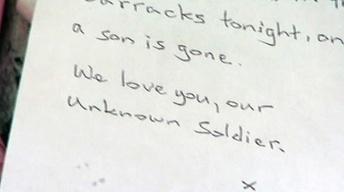 Barracks tonight, an
a son is gone.
We love you, our
Unknown Soldier.
x